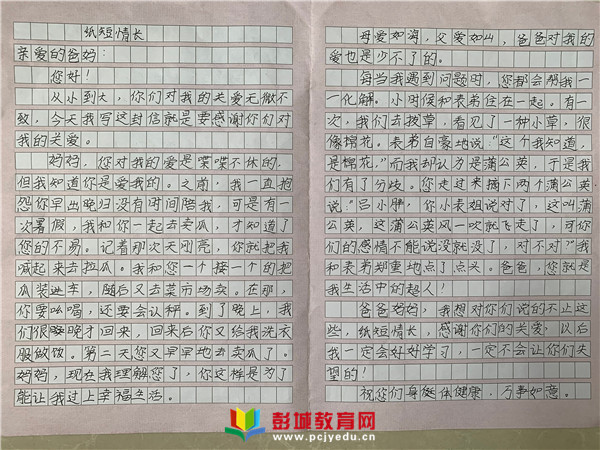 纸短情长
亲爱的爸妈：
您好！
从小到大，你们对我的关爱无微不
致，今天我写这封信就是要感谢你们对
我的关爱。
妈妈，您对我的爱是喋喋不休的，
但我知道你是爱我的。之前，我一直抱
怨你早出晚归没有时间陪我，可是有一
次暑假，我和你一起去卖瓜，才知道了
您的不易。记着那次天刚亮，你就把我
喊起来去拉瓜。我和您一个接一个的把
瓜装进车，随后又去菜市场卖。在那，
你要吆喝，还要会认秤。到了晚上，我
们很晚晚才回来，回来后你又给我洗衣
服做饭。第二天您又早早地去卖瓜了。
妈妈，现在我理解您了，你这样是为了
能让我过上幸福生活。
母爱如海，父爱如山，爸爸对我的
爱也是少不了的。
每当我遇到问题时，您都会帮我一
一化解。小时候和表弟住在一起。有一
次，我们去拨草，看见了一种小草，很
像棉花。表弟自豪地说“这个我知道，
是棉花。”而我却认为是蒲公英，于是我
们有了分歧。您走过来摘下两个蒲公英
说“吕小胖，你小表姐说对了，这叫蒲
公英，这蒲公英风一吹就飞走了，可你
们的感情不能说没就没了，对不对”我
和表弟郑重地点了点头。爸爸，您就是
我生活中的超人！
爸爸妈妈，我想对你们说的不止这
些，纸短情长，感谢你们的关爱，以后
我一定会好好学习，一定不会让你们失
望的！
祝您们身体健康，万事如意。
彭城教育网
www.pcjyedu.cn